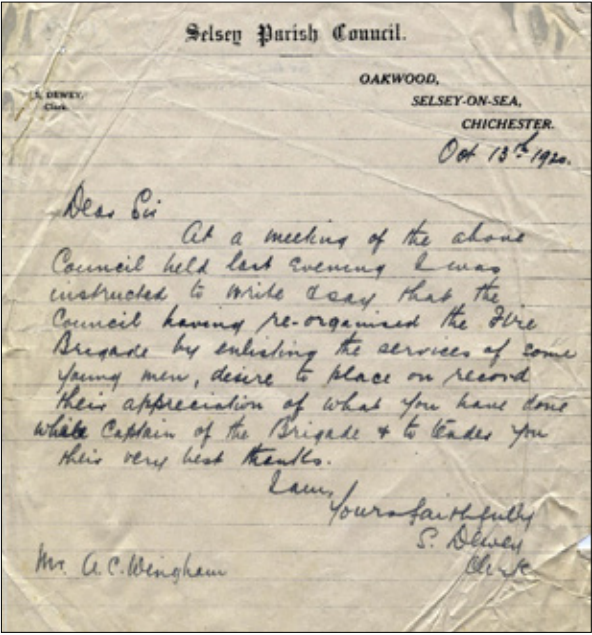 Selsey Parish Council.
S. DEWEY,
Clerk.
OAKWOOD,
SELSEY-ON-SEA,
CHICHESTER.
Oct 13th 1920.
Dear Sir
At a meeting of the above
Council held last evening I was
instructed to write & say that the
Council having re-organised the Fire
Brigade by enlisting the services of some
young men, desire to place on record
their appreciation of what you have done
while Captain of the Brigade & to tender you
their very best thanks.
I am,
Yours faithfully
S. Dewey
Clerk
Mr. A. C. Wingham